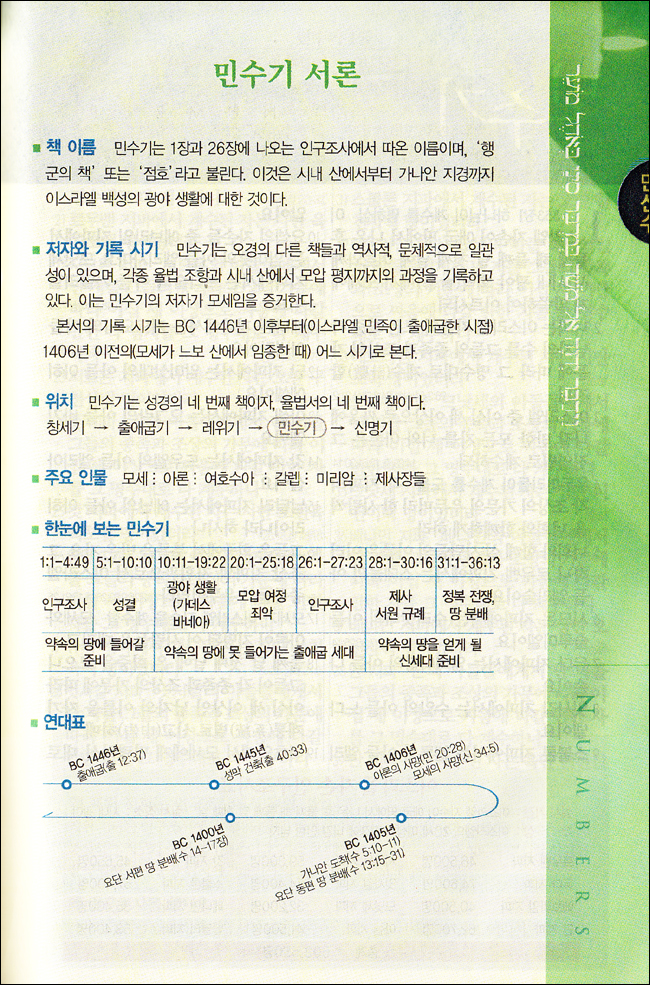 민수기 서론
책 이름 민수기는 1장과 26장에 나오는 인구조사에서 따온 이름이며, ‘행
군의 책’ 또는 ‘점호’라고 불린다. 이것은 시내 산에서부터 가나안 지경까지
이스라엘 백성의 광야 생활에 대한 것이다.
저자와 기록 시기 민수기는 오경의 다른 책들과 역사적, 문체적으로 일관
성이 있으며, 각종 율법 조항과 시내 산에서 모압 평지까지의 과정을 기록하고
있다. 이는 민수기의 저자가 모세임을 증거한다.
본서의 기록 시기는 BC 1446년 이후부터(이스라엘 민족이 출애굽한 시점)
1406년 이전의(모세가 느보 산에서 임종한 때) 어느 시기로 본다.
위치 민수기는 성경의 네 번째 책이자, 율법서의 네 번째 책이다.
창세기 → 출애굽기 → 레위기 → 민수기 → 신명기
주요 인물 모세 ⋮ 아론 ⋮ 여호수아 ⋮ 갈렙 ⋮ 미리암 ⋮ 제사장들
한눈에 보는 민수기
1:1-4:49 5:1-10:10 10:11-19:22 20:1-25:18 26:1-27:23 28:1-30:16 31:1-36:13
인구조사 성결 광야 생활 (가데스 바네아) 모압 여정 죄악 인구조사 제사 서원 규례 정복 전쟁, 땅 분배
약속의 땅에 들어갈 준비 약속의 땅에 못 들어가는 출애굽 세대 약속의 땅을 얻게 될 신세대 준비
연대표
BC 1446년
출애굽(출 12:37)
BC 1445년
성막 건축(출 40:33)
BC 1406년
아론의 사망(민 20:28)
모세의 사망(신 34:5)
BC 1400년
요단 서편 땅 분배(수 14-17장)
BC 1405년
가나안 도착(수 5:10-11)
요단 동편 땅 분배(수 13:15-31)
NUMBERS